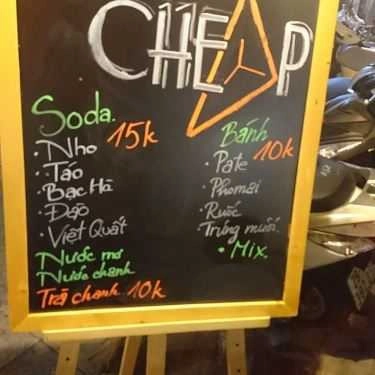 CHEAP
Soda. 15k
• Nho
• Táo
• Bạc Hà
• Đào
• Việt Quất
Nước mơ
Nước chanh
Trà chanh 10k
Bánh 10k
• Pate
• Phomai
• Ruốc
• Trứng muối
• Mix.